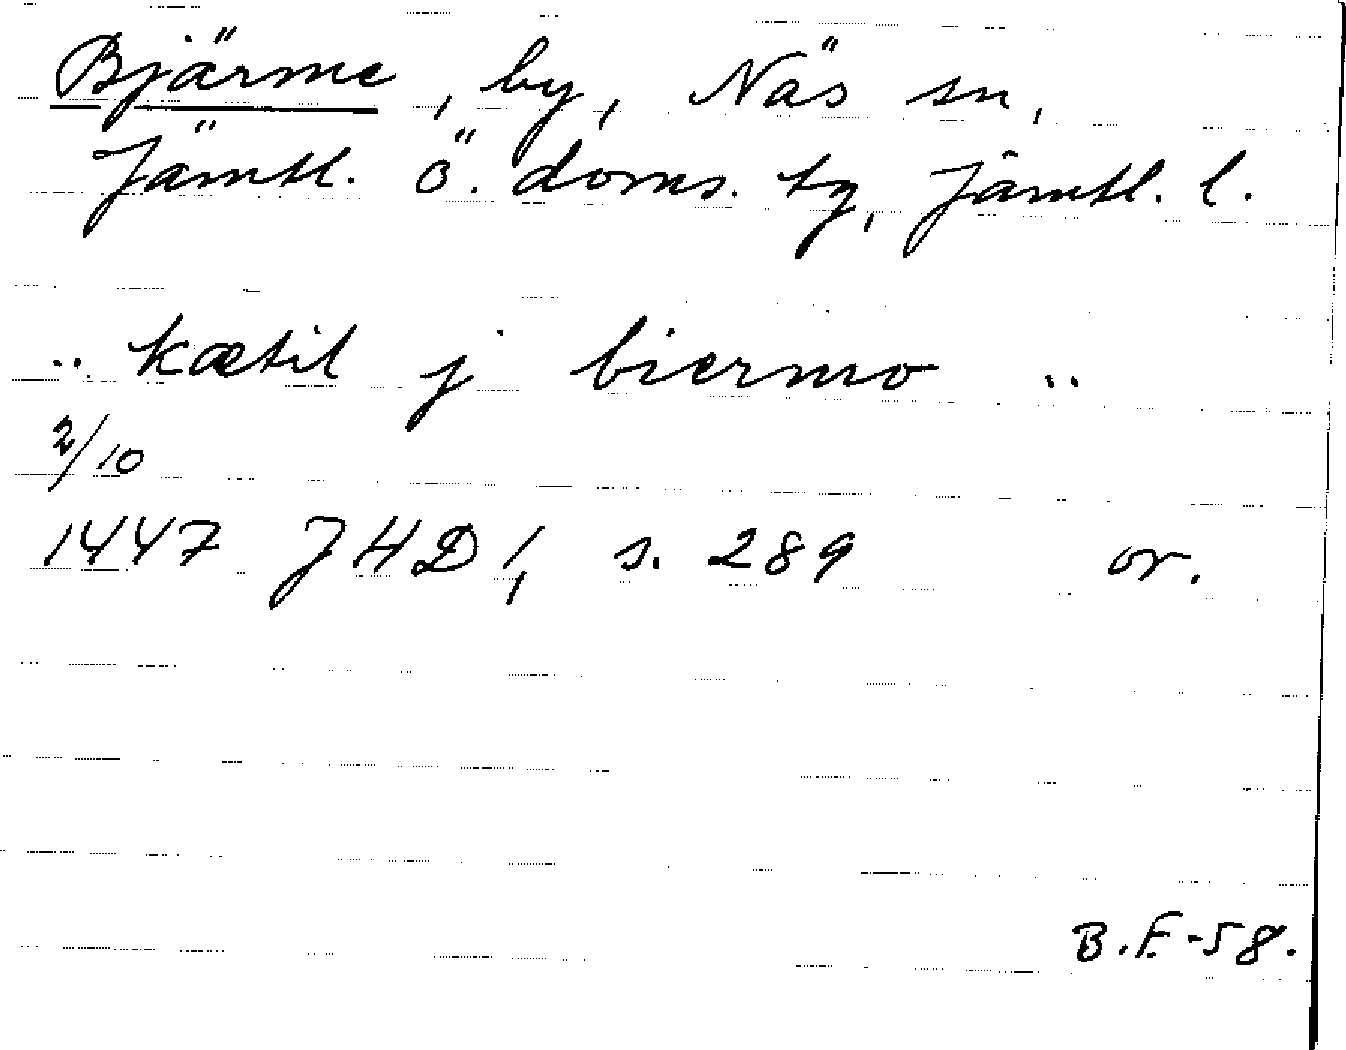 Bjärme, by, Näs sn,
Jämtl. ö. doms. tg, Jämtl. l.
.. kætil j biermo ..
2/10
1447 JHD 1, s. 289 or.
B.F.-58.